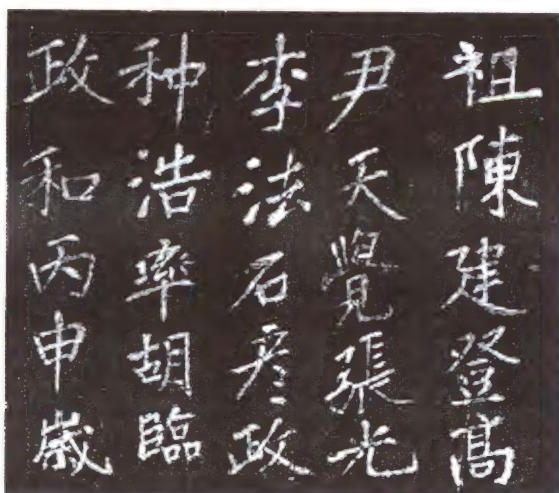 祖陳建登高
尹天覺張光
李法石彥政
种浩率胡臨
政和丙申歲